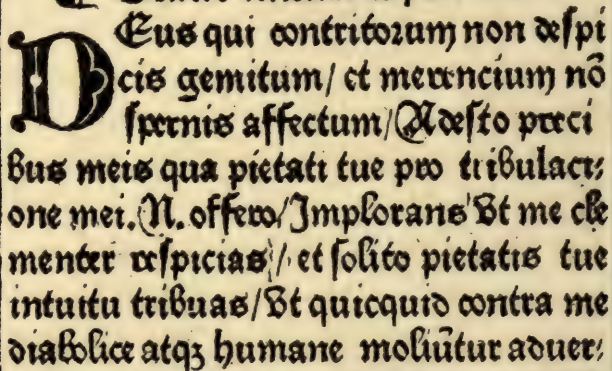 DEus qui contritorum non despi
cis gemitum/ et merencium nō
spernis affectum/ Adesto preci
bus meis qua pietati tue pro tribulaci⸗
one mei. N. offero/ Implorans Vt me cle
menter respicias/ et solito pietatis tue
intuitu tribuas/ Vt quicquid contra me
diabolice atqꝫ humane moliūtur aduer⸗